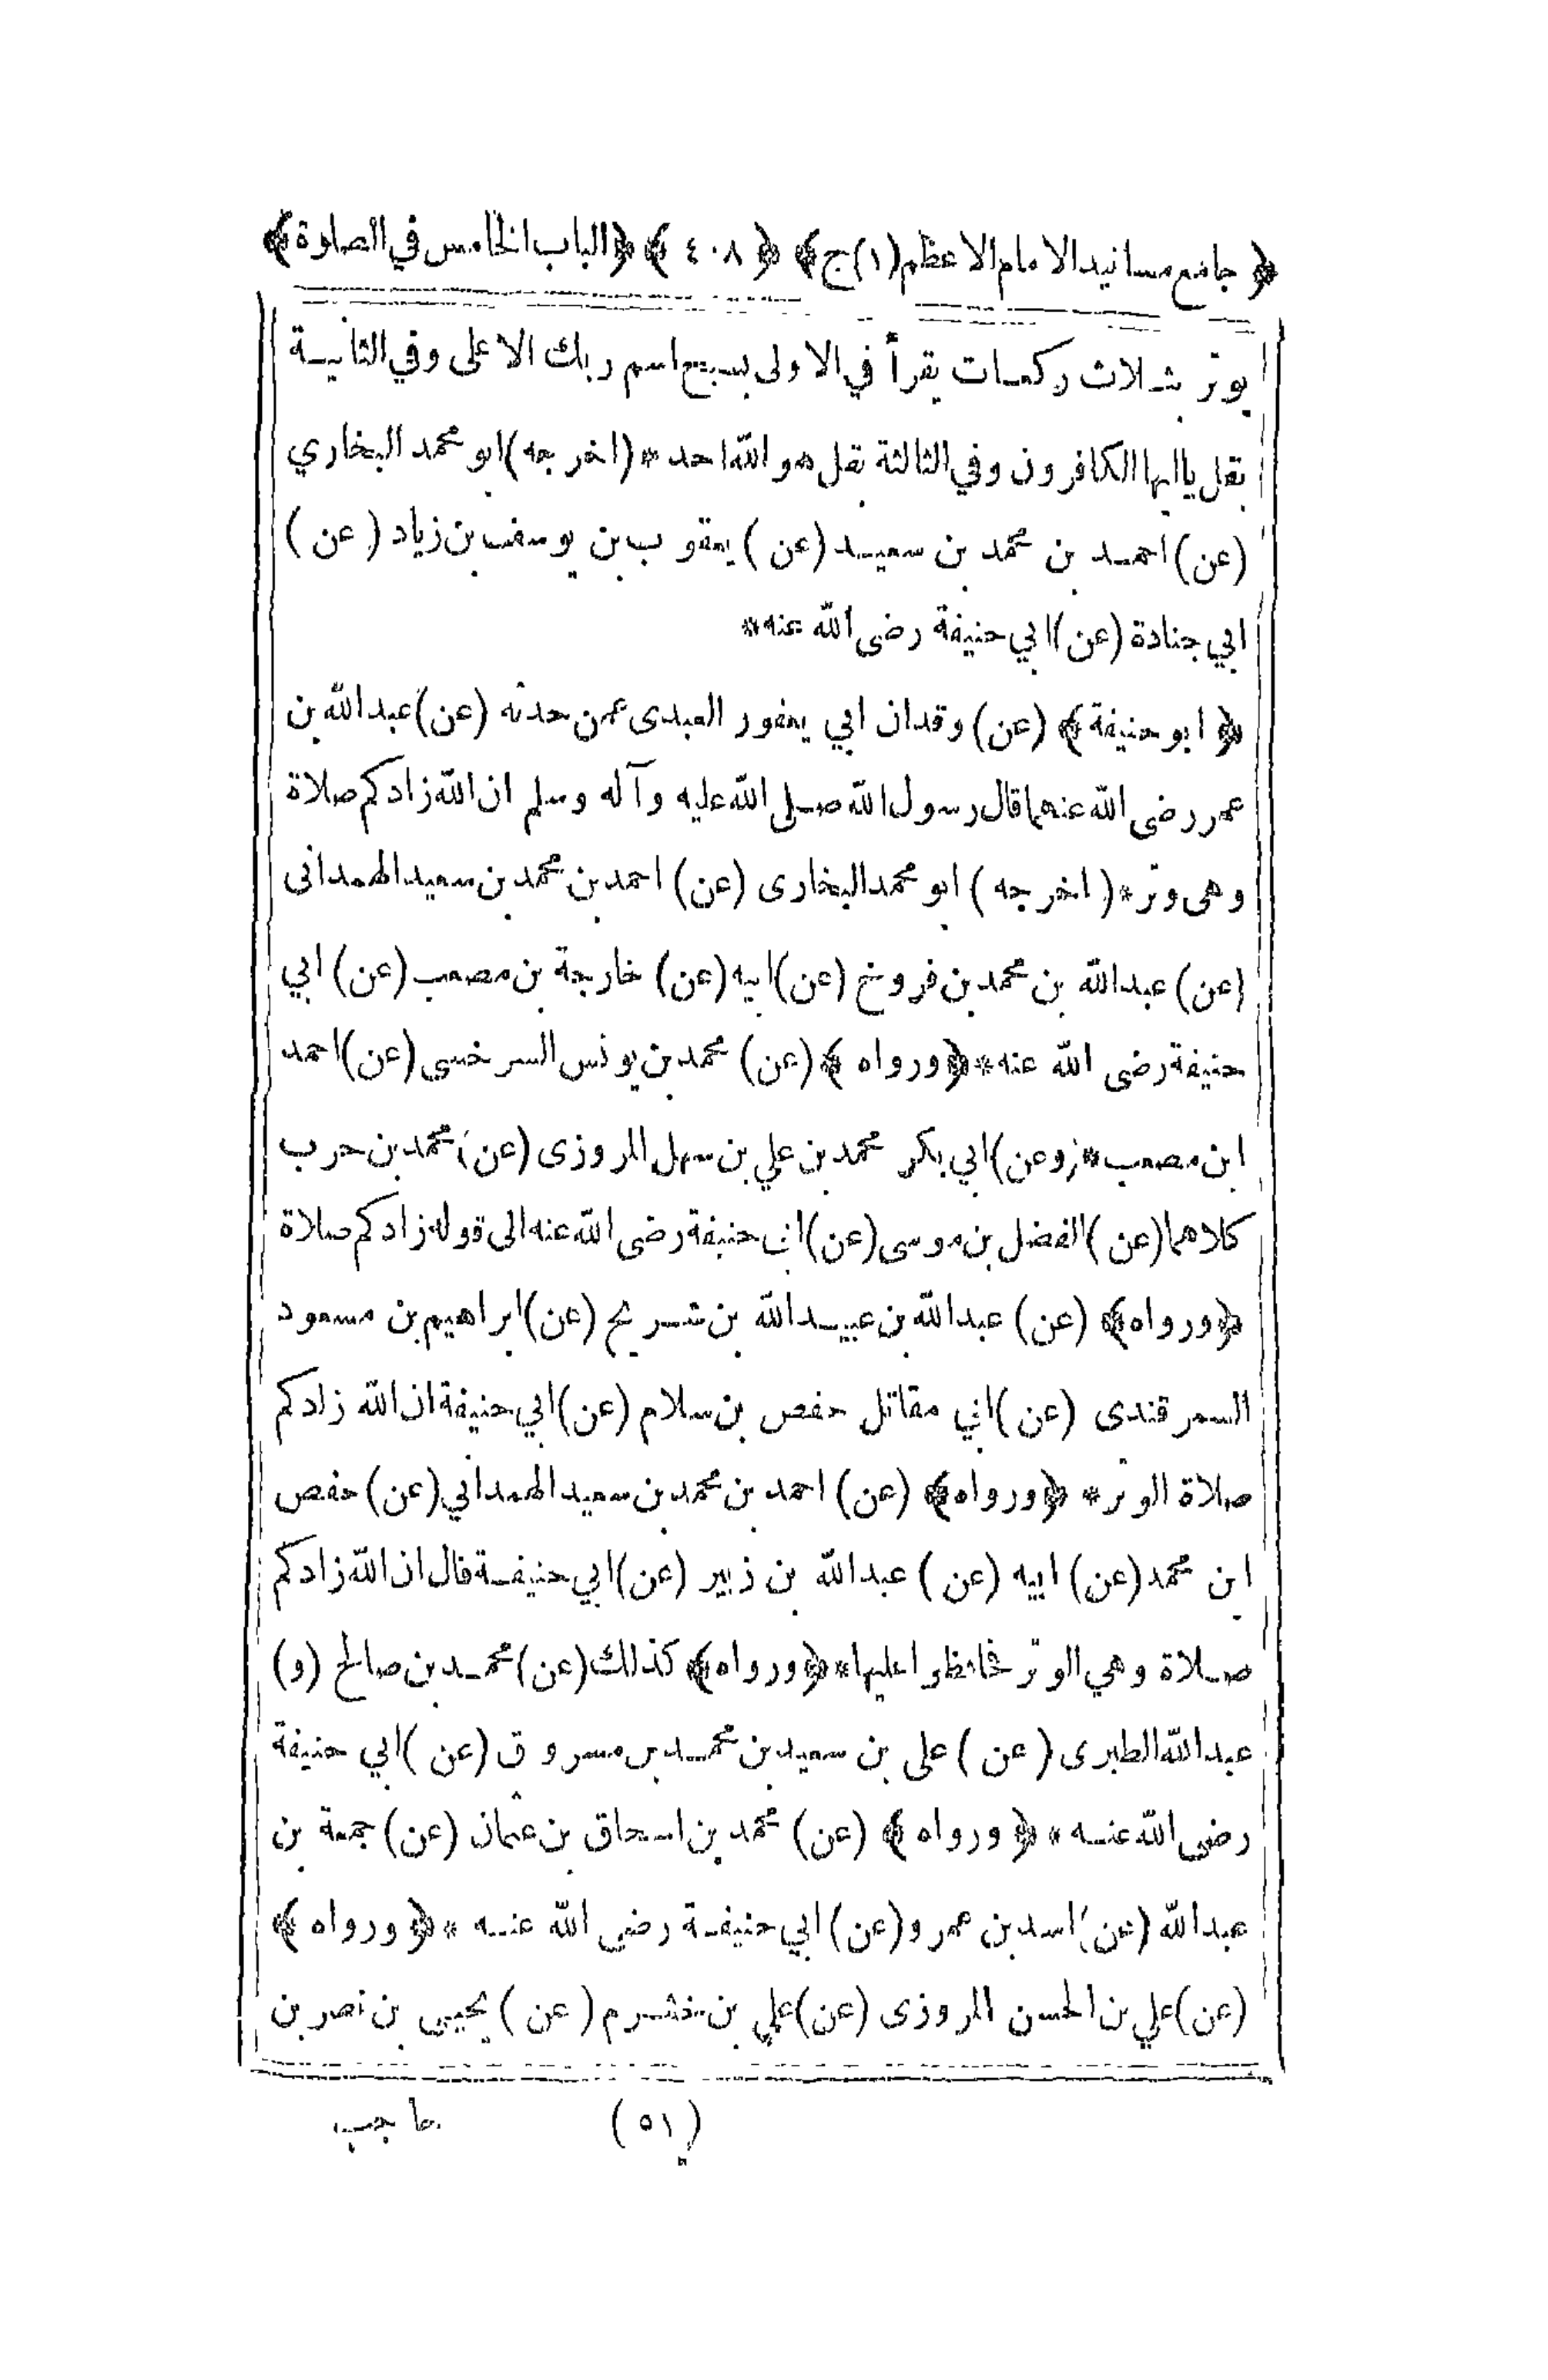 ﴿ جامع مسانيد الامام الاعظم (١) ج ﴾ ﴿ ٤٠٨ ﴾ ﴿ الباب الخامس في الصلوة ﴾
يوتر بثلاث ركعات يقرأ في الاولى بسبح اسم ربك الاعلى وفي الثانية
بقل يا ايها الكافرون وفي الثالثة بقل هو الله احد * (اخرجه) ابو محمد البخاري
(عن) احمد بن محمد بن سعيد (عن) يعقوب بن يوسف بن زياد (عن)
ابي جنادة (عن) ابي حنيفة رضى الله عنه *
﴿ ابو حنيفة ﴾ (عن) وقدان ابي يعفور العبدى عمن حدثه (عن) عبد الله بن
عمر رضى الله عنهما قال رسول الله صلى الله عليه وآله وسلم ان الله زادكم صلاة
وهى وتر * (اخرجه) ابو محمد البخارى (عن) احمد بن محمد بن سعيد الهمدانى
(عن) عبد الله بن محمد بن فروخ (عن) ابيه (عن) خارجة بن مصعب (عن) ابي
حنيفة رضى الله عنه * ﴿ ورواه ﴾ (عن) محمد بن يونس السرخسى (عن) احمد
ابن مصعب * (وعن) ابي بكر محمد بن علي بن سهل المروزى (عن) محمد بن حرب
كلاهما (عن) الفضل بن موسى (عن) ابي حنيفة رضى الله عنه الى قوله زادكم صلاة
﴿ ورواه ﴾ (عن) عبد الله بن عبيد الله بن شريح (عن) ابراهيم بن مسعود
السمرقندى (عن) ابي مقاتل حفص بن سلام (عن) ابي حنيفة ان الله زادكم
صلاة الوتر * ﴿ ورواه ﴾ (عن) احمد بن محمد بن سعيد الهمداني (عن) حفص
ابن محمد (عن) ابيه (عن) عبد الله بن زبير (عن) ابي حنيفة قال ان الله زادكم
صلاة وهي الوتر فحافظوا عليها * ﴿ ورواه ﴾ كذلك (عن) محمد بن صالح (و)
عبد الله الطبرى (عن) على بن سعيد بن محمد بن مسروق (عن) ابي حنيفة
رضى الله عنه * ﴿ ورواه ﴾ (عن) محمد بن اسحاق بن عثمان (عن) جمعة بن
عبد الله (عن) اسد بن عمرو (عن) ابي حنيفة رضى الله عنه * ﴿ ورواه ﴾
(عن) علي بن الحسن المروزى (عن) علي بن خشرم (عن) يحيى بن نصر بن
(٥١) حاجب